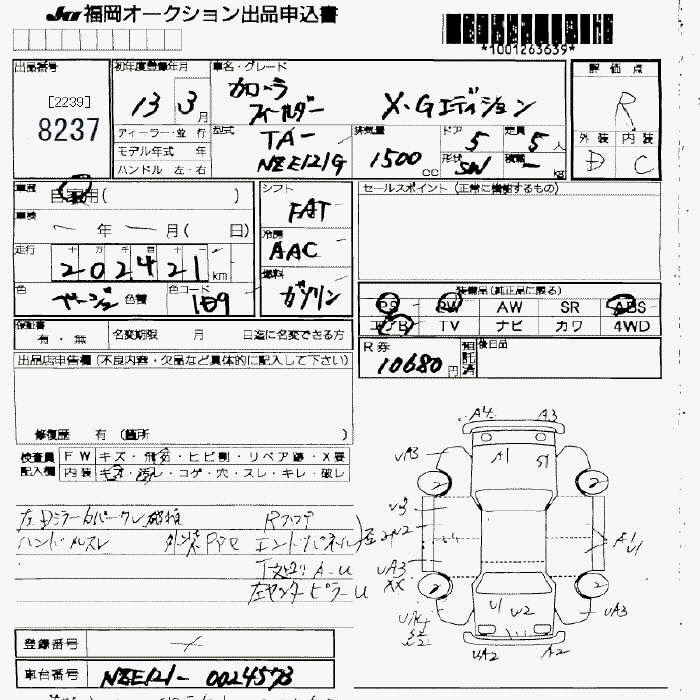 JU 福岡オークション出品申込書
*1001263639*
出品番号
[2239]
8237
初年度登録年月
13 3月
車名・グレード
カローラ
フィールダー X・Gエディション
評価点
R
外装 内装
D C
ディーラー・並行
モデル年式 年
ハンドル 左・右
型式
TA-
NZE121G
排気量
1500 cc
ドア
5
定員
5人
形状
SW
積載
- kg
車歴
自家用( )
車検
- 年 - 月( 日)
走行
十 万 千 百 十 一
202421 km
色
ベージュ 色替
色コード
1E9
シフト
FAT
冷房
AAC
燃料
ガソリン
セールスポイント(正常に機能するもの)
装備品(純正品に限る)
PS PW AW SR ABS
エアB TV ナビ カワ 4WD
保証書
有・無
名変期限 月 日迄に名変できる方
R券
10680円
預託済
後日品
出品店申告欄(不良内容・欠品など具体的に記入して下さい)
修復歴 有 (箇所 )
検査員
記入欄
FW キズ・飛石・ヒビ割・リペア跡・X要
内装 キズ・汚レ・コゲ・穴・スレ・キレ・破レ
左Dミラーカバークレ
ハンドルスレ 外装
Rフロア
エンドパネル
A-U
左センターピラーU
A4 A3
UA3 A1 S1
2 2
U3
U2
A1
U1
UA3
XX
2 2
U1 U2
UA3
UA2 A2
登録番号 -/-
車台番号 NZE121-0024573